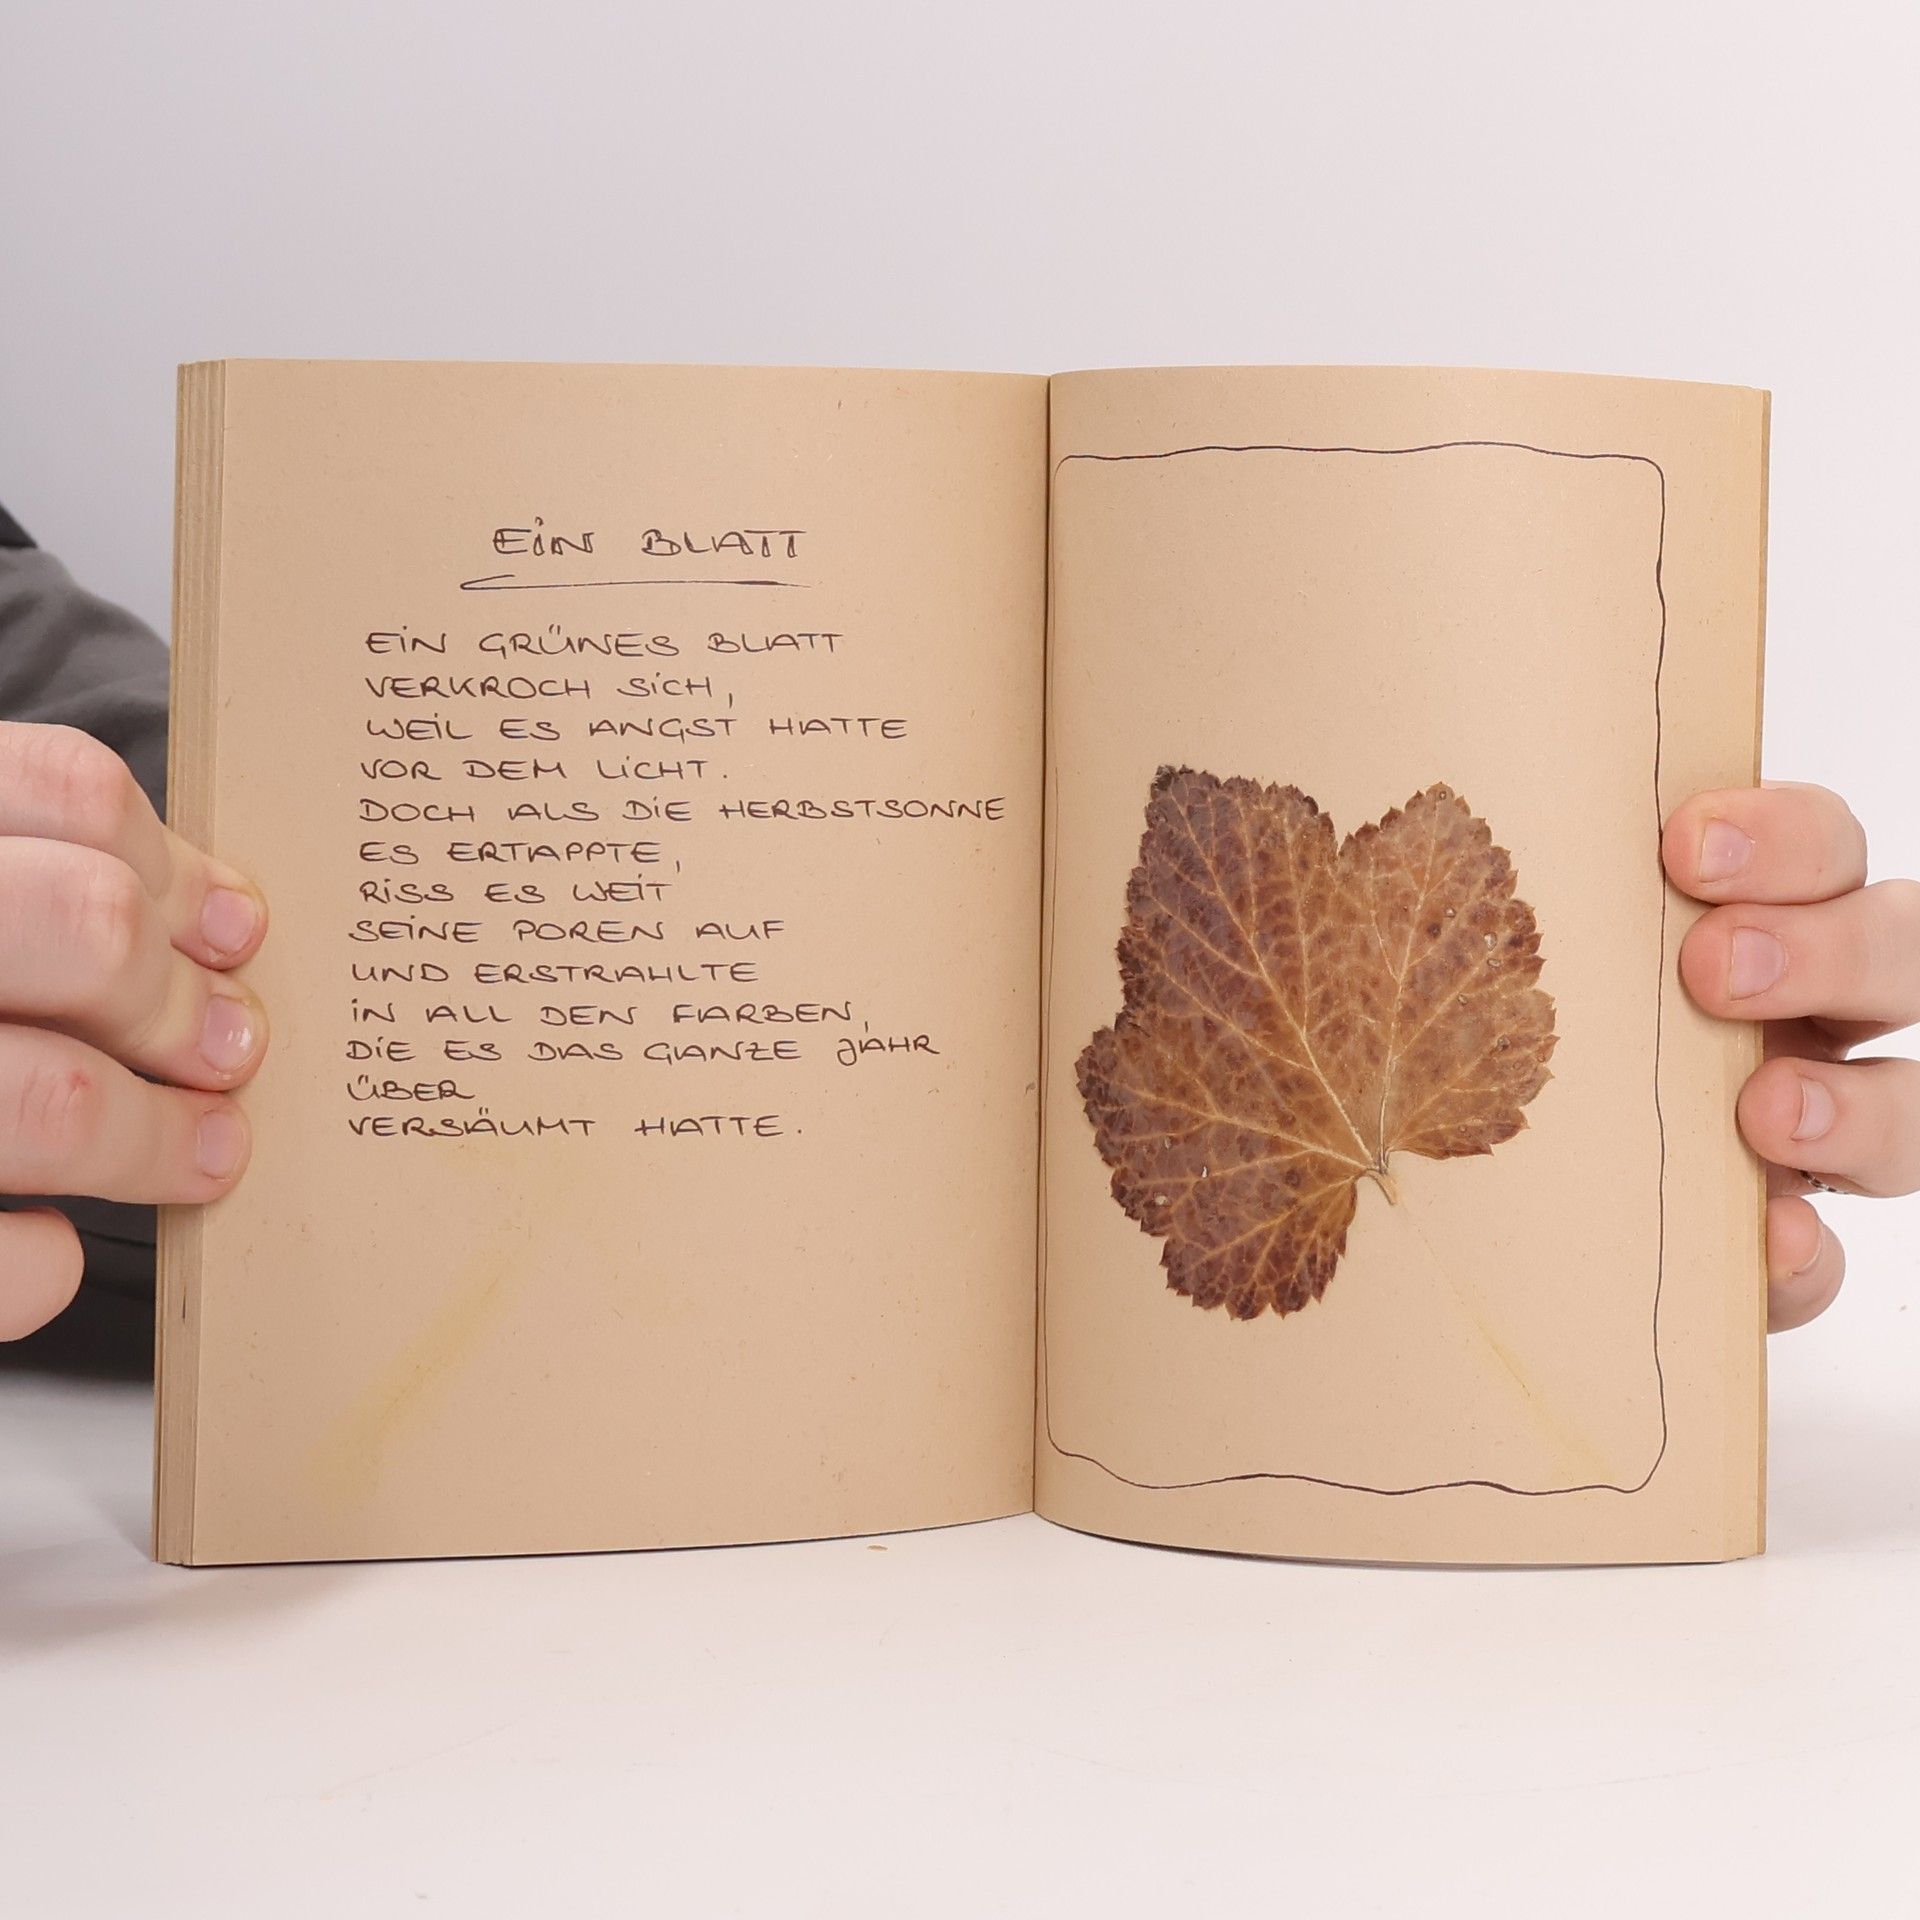 EiN BLATT
EiN GRÜNES BLATT
VERKROCH SiCH,
WEiL ES ANGST HATTE
VOR DEM LiCHT.
DOCH ALS DiE HERBSTSONNE
ES ERTAPPTE,
RiSS ES WEiT
SEiNE POREN AUF
UND ERSTRAHLTE
iN ALL DEN FARBEN,
DiE ES DAS GANZE JAHR
ÜBER
VERSÄUMT HATTE.